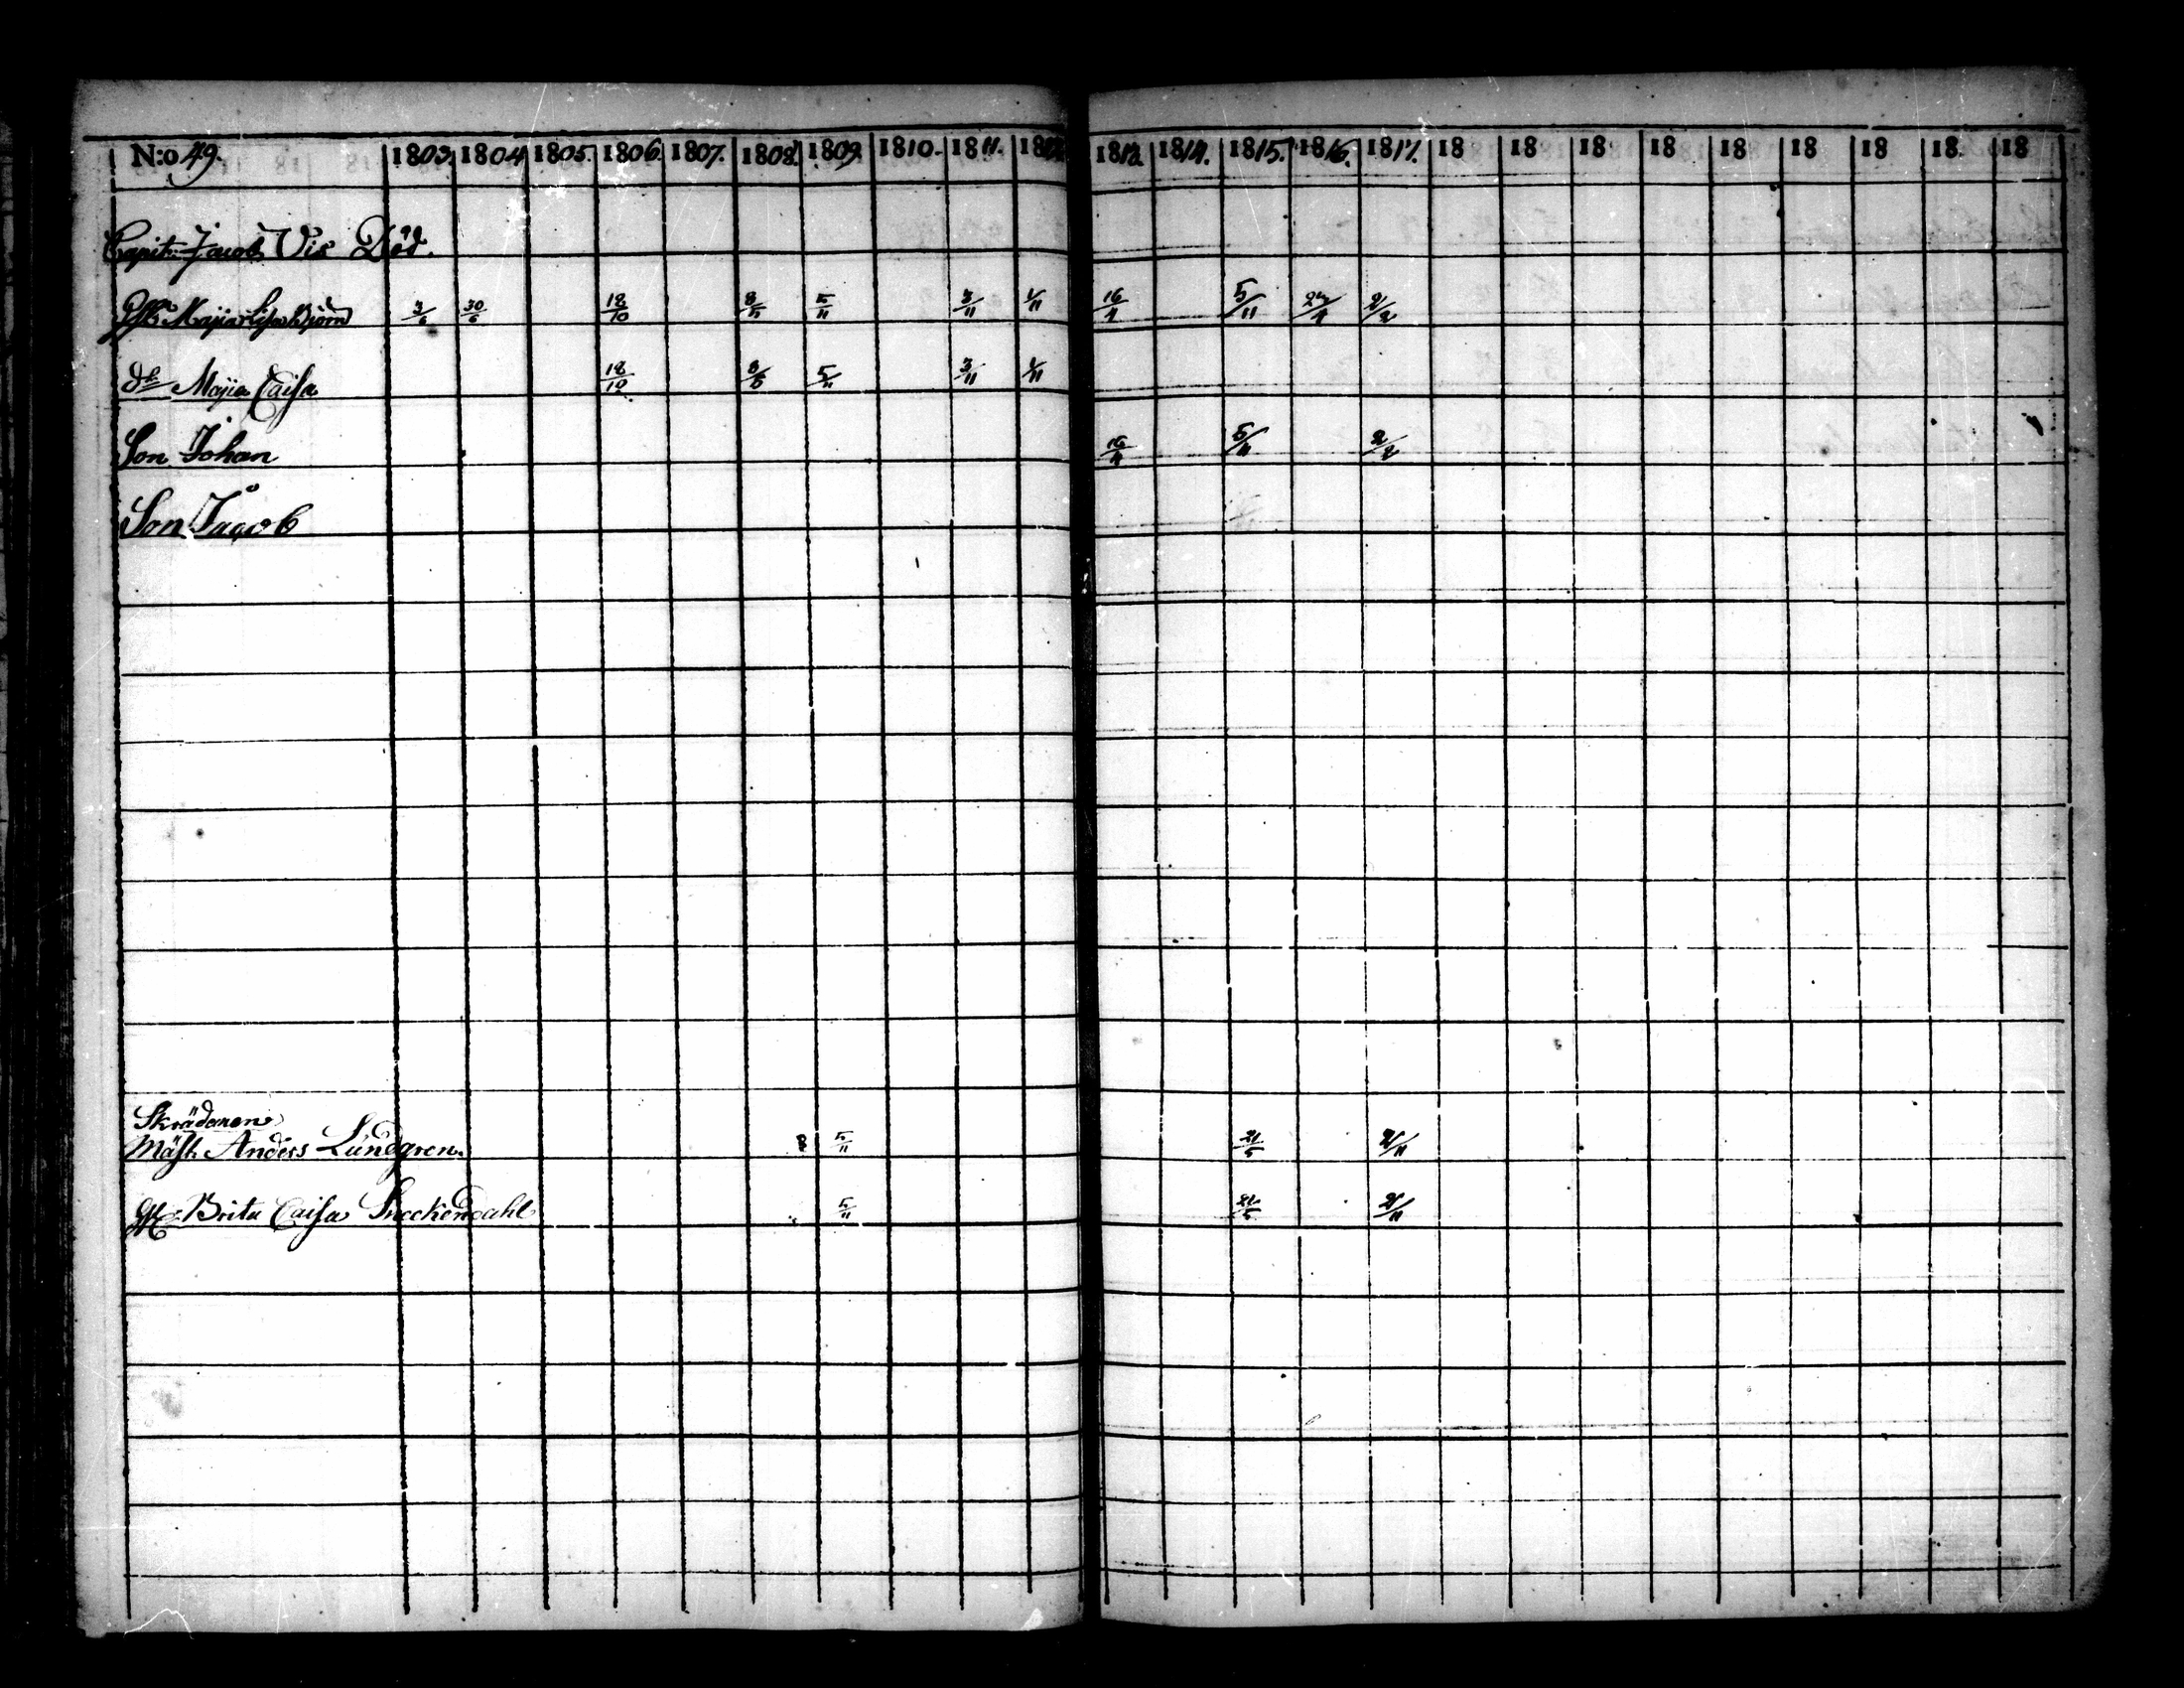 N:o 49. 1803. 1804 1805. 1806. 1807. 1808. 1809. 1810. 1811. 1812. 1813. 1814. 1815. 1816. 1817. 18 18 18 18 18 18 18 18 18
Capit: Jacob Vis Död.
Majia Lisa Björn 3/6 30/6 18/10 5/11 3/11 1/11 16/4 5/11 2/2
dr Majia Caisa 18/10 5/11 3/11 1/11
Son Johan 16/4 5/11 2/2
Son Jacob
Skrädaren
Mäst. Anders Lundgren. 5/11 21/5 2/11
Brita Caisa Sneckendahl 5/11 21/5 2/11